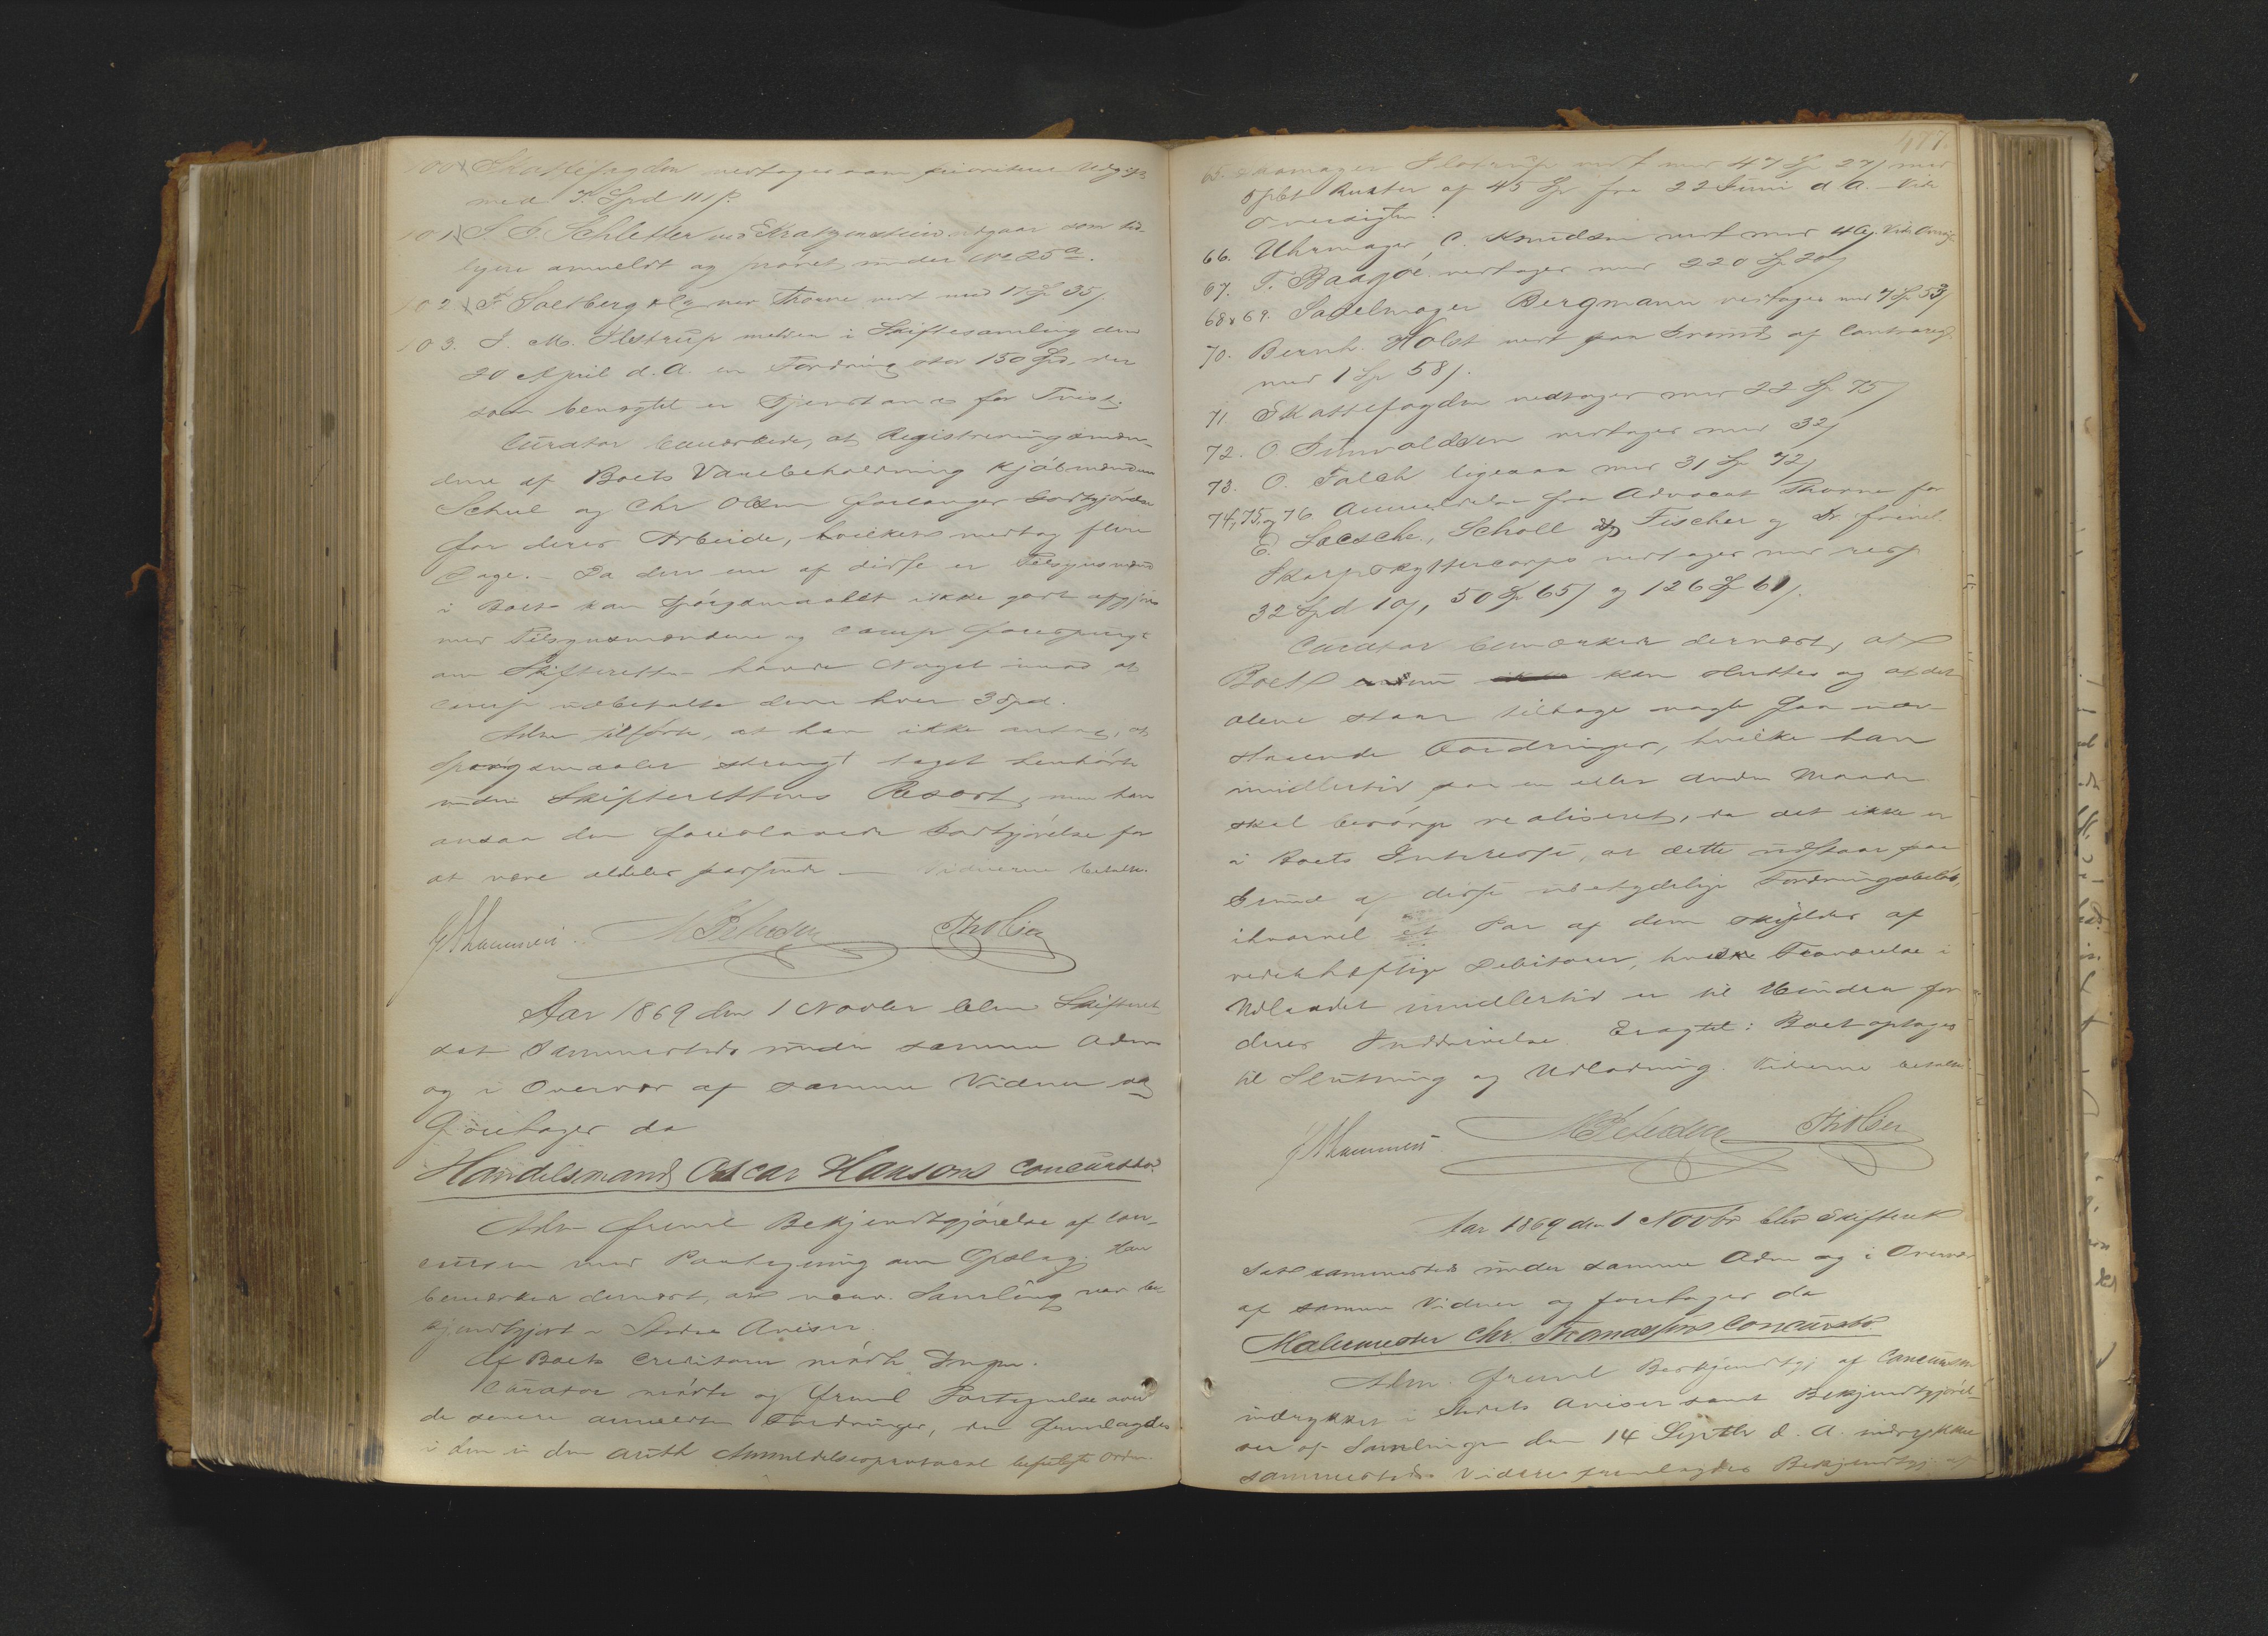 100 Skattefogden vedtages som prioriteret Udgift
med 7 Spd 111 s.
101 S. E. Schletter ved Kratzenstein udgaar som tid-
ligere anmeldt og prøvet under No 25 a.
102 F. Saltberg ved Thorne vedt med 17 Sp 35 s.
103. J. M. Ilstrup melder i Skiftesamling den
20 April d. A. en Fordring stor 150 Spd, der
som benegtet er Gjenstand for Tvist.
Curator bemærkede, at Registreringsmæn-
dene af Boets Varebeholdning Kjøbmændene
Schul og Chr Olsen forlanger Godtgjørelse
for deres Arbeide, hvilken medtog flere
Dage. - Da den ene af disse er Tilsynsmand
i Boet kan Spørgsmaalet ikke godt afgjøres
med Tilsynsmændene og Comp forespurgte
om Skifteretten havde Noget imod at
Comp udbetalte dem hver 3 Spd.
Adm tilførte, at han ikke antog, at
Spørgsmaalet strængt taget henhørte
under Skifterettens Resort, men han
ansaa den foreslaaede Godtgjørelse for
at være aldeles passende — Vidnerne betalte.
M Pedersen
Aar 1869 den 1 Novber blev Skifteret
sat sammesteds under samme Adm
og i Overvær af samme Vidner og
foretager da
Handelsmand Oscar Hansons Concursbo.
Adm freml Bekjendtgjørelse af Con-
cursen med Paategning om Opslag. Han
bemærkede dernæst, at nærv. Samling var be-
kjendtgjort i Stedets Aviser.
Af Boets Creditorer mødte Ingen.
Curator mødte og freml Fortegnelse over
de senere anmeldte Fordringer, der fremlagdes
i den i den auth Anmeldelsesprotocol befulgte Orden.
477.
65. Skomager Ilstrup vedt med 47 Sp 27 s med
5 pCt Renter af 45 Sp fra 22 Juni d. A. Vide
Oversigten.
66. Uhrmager C. Knudsen vedt med 46 s. Vide Oversigt
67. T. Baasjøe vedtages med 220 Sp 20 s
68 & 69. Sadelmager Bergmann vedtages med 7 Sp 53 s
70. Bernh. Holst vedt paa Grund af Contrareg.
med 1 Sp 58 s.
71 Skattefogden vedtages med 22 Sp 75 s
72. O. Gunvaldsen vedtages med 32 s
73. O. Falch ligesaa med 31 Sp 72 s
74, 75 og 76 Anmeldelse fra Advocat Thorne for
E. Saesche, Scholl og Fischer og Dr frivil.
Skarpskyttercorps vedtages med resp
32 Spd 10 s, 50 Sp 65 s og 126 Sp 61 s.
Curator bemærkede dernæst, at
Boet kan sluttes og at det
alene staar tilbage nogle faa ude-
staaende Fordringer, hvilke han
imidlertid paa en eller anden Maade
skal besørge realiseret, da det ikke er
i Boets Interesse, at dette udstaar paa
Grund af disse ubetydelige Fordringsbeløb,
ihvorvel et Par af dem skyldes af
vederhæftige Debitorer, hvis Fraværelse i
Udlandet imidlertid er til Hinder for
deres Inddrivelse. Eragtet: Boet optages
til Slutning og Udlodning. Vidnerne betalte.
M Pedersen
Aar 1869 den 1 Novbr blev Skifteret
sat sammesteds under samme Adm og i Overvær
af samme Vidner og foretages da
Malermester Chr. Thomassens Concursbo
Adm. freml Bekjendtgj af Concursen
indrykket i Stedets Aviser samt Bekjendtgjørel-
sen af Samlingen den 14 Septbr d. A. indrykket
sammesteds. Videre fremlagdes Bekjendtgj af